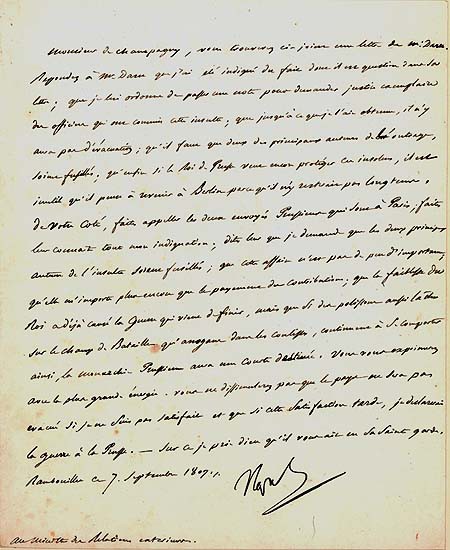 Monsieur de Champagny, vous trouverez ci-joint une lettre de Mr. Daru.
Repondez à Mr. Daru que j'ai été indigné du fait dont il est question dans sa
lettre; que je lui ordonne de passer une note pour demander justice exemplaire
des officiers qui ont commis cette insulte; que jusqu'à ce que je l'aie obtenue, il n'y
aura pas d'évacuation; qu'il faut que deux des principaux auteurs de outrage,
soient fusillés; qu'enfin si le Roi de Prusse veut encore protéger ces insolens, il est
inutile qu'il pense à revenir à Berlin parce qu'il n'y resterait pas longtems.
De votre Coté, faites appeller les deux envoyés Prussiens qui sont à Paris, faites
leur connaitre toute mon indignation; dites leur que je demande que les deux principaux
auteurs de l'insulte soient fusillés; que cette affaire n'est pas de peu d'importance;
qu'elle m'importe plus encore que le payement des Contributions; que la faiblesse du
Roi a déjà causé la Guerre qui vient de finir, mais que si des polissons aussi laches
sur le champ de Bataille qu'arrogans dans les coulisses, continuent à se comporter
ainsi, la monarchie Prussienne aura une courte destinée. Vous vous exprimerez
avec la plus grande énergie. vous ne dissimulerez pas que le pays ne sera pas
evacué si je ne suis pas satisfait et que si cette satisfaction tarde, je declarerai
la guerre à la Prusse. — Sur ce je prie dieu qu'il vous ait en sa Sainte garde.
Rambouillet ce 7. Septembre 1807.
Nap
au Ministre des Relations exterieures.